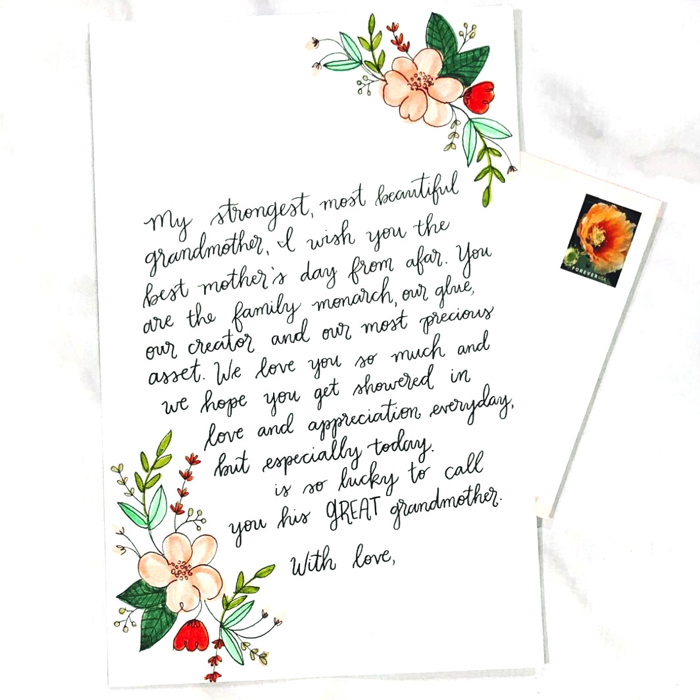 My strongest, most beautiful
grandmother, I wish you the
best mother's day from afar. You
are the family monarch, our glue,
our creator and our most precious
asset. We love you so much and
we hope you get showered in
love and appreciation everyday,
but especially today.
is so lucky to call
you his GREAT grandmother.
With love,
FOREVER